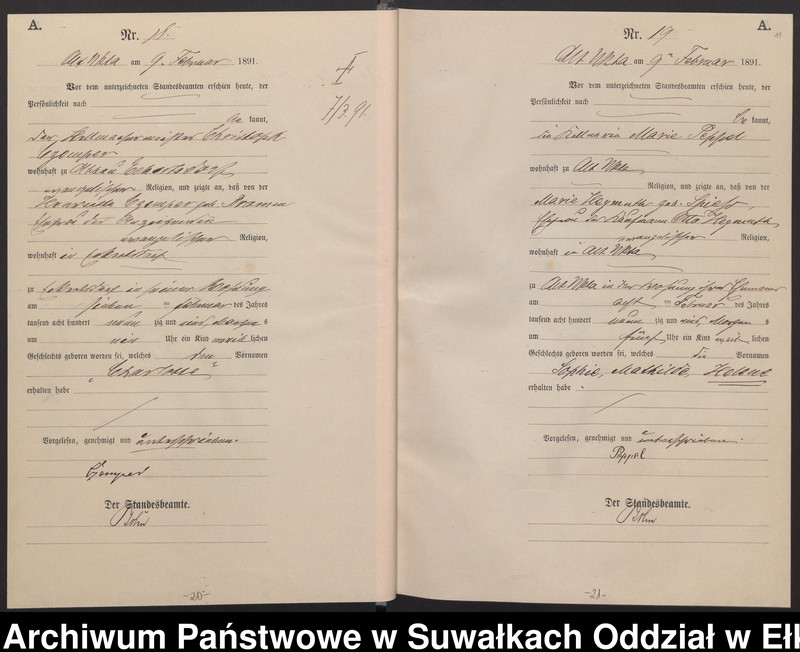 A.
Nr. 18.
Alt Ukta am 9. Februar 1891.
Vor dem unterzeichneten Standesbeamten erschien heute, der
Persönlichkeit nach
be kannt,
der Christoph
wohnhaft zu Eckertsdorf
evangelischer Religion, und zeigte an, daß von der
Henriette geb.
Ehefrau des
evangelischer Religion,
wohnhaft in Eckertsdorf
zu Eckertsdorf in seiner Wohnung
am sieben ten Februar des Jahres
tausend acht hundert neun zig und eins, s
um neun Uhr ein Kind weib lichen
Geschlechts geboren worden sei, welches den Vornamen
"Charlotte"
erhalten habe
Vorgelesen, genehmigt und unterschrieben.
Der Standesbeamte.
-20-
7/3.91.
A.
Nr. 19
Alt Ukta am 9ten Februar 1891.
Vor dem unterzeichneten Standesbeamten erschien heute, der
Persönlichkeit nach
be kannt,
die Marie Peppel
wohnhaft zu Alt Ukta
Religion, und zeigte an, daß von der
Marie Heymuth geb. Spiess,
Ehefrau des Kaufmann Otto Heymuth
evangelischer Religion,
wohnhaft in Alt Ukta
zu Alt Ukta in der Wohnung ihres Ehemannes
am acht ten Februar des Jahres
tausend acht hundert neun zig und eins, Morgens
um fünf Uhr ein Kind weib lichen
Geschlechts geboren worden sei, welches die Vornamen
Sophie, Mathilde, Helene
erhalten habe.
Vorgelesen, genehmigt und unterschrieben.
Peppel
Der Standesbeamte.
-21-
Archiwum Państwowe w Suwałkach Oddział w Ełk